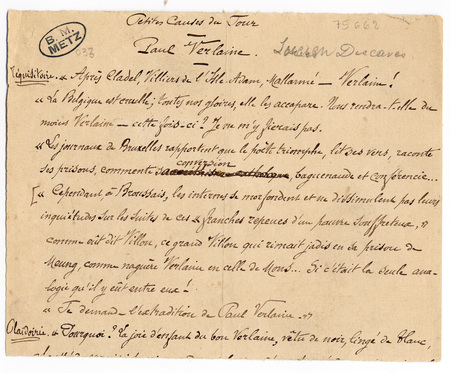 Petites Causes du Jour
75668
B. M. METZ
Paul Verlaine.
Lucien Descaves
Réquisitoire. « Après Cladel, Villiers de l'Isle-Adam, Mallarmé — Verlaine !
« La Belgique est cruelle, toutes nos gloires, elle les accapare. Nous rendra-t-elle du
moins Verlaine — cette fois-ci ? Je ne m'y fierais pas.
« Les journaux de Bruxelles rapportent que le poëte triomphe, lit ses vers, raconte
conversion
ses prisons, commente sa baguenaude et conférencie...
« Cependant, à Broussais, les internes se morfondent et ne dissimulent pas leurs
inquiétudes sur les suites de ces « franches repeues d'un pauvre souffreteux, »
comme eût dit Villon, ce grand Villon qui rimait jadis en sa prison de
Meung, comme naguère Verlaine en celle de Mons... Si c'était la seule ana-
logie qu'il y eût entre eux !
« Je demande l'extradition de Paul Verlaine. »
Plaidoirie. « Pourquoi ? La joie d'enfant du bon Verlaine, vêtu de noir, linge de blanc,